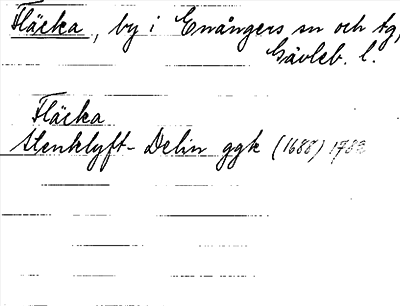 Fläcka, by i Enångers sn och tg,
Gävleb. l.
Fläcka
Stenklyft- Delin ggk (1688)